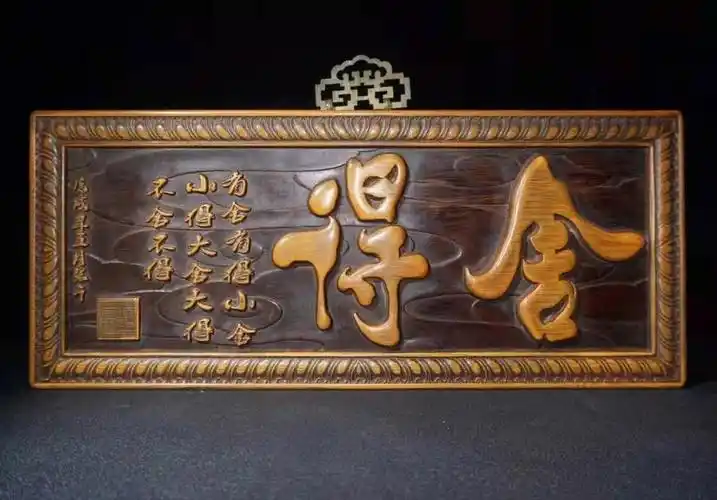 舍得
有舍有得小舍
小得大舍大得
不舍不得
戊戌年五月